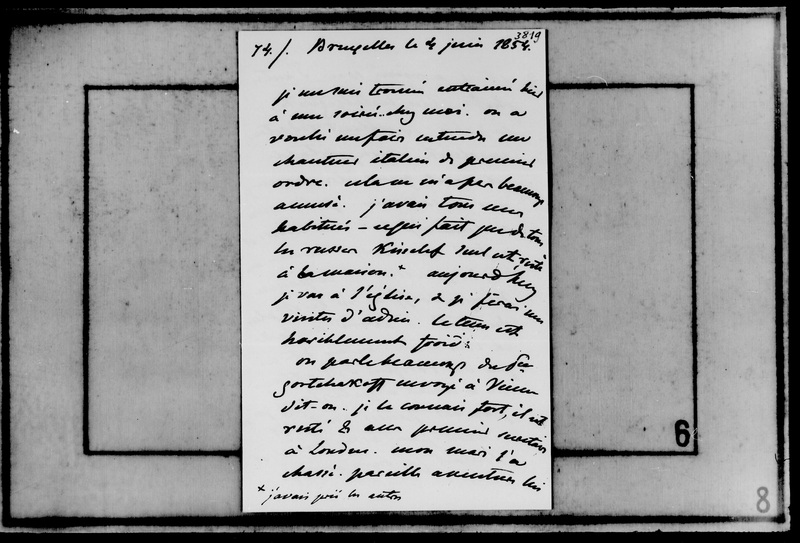 3819
74./. Bruxelles le 4 juin 1854.
je me suis trouvée entrainée hier
à une soirée chez moi. on a
voulu me faire entendre un
chanteur italien de premier
ordre. cela ne m'a pas beaucoup
amusé. j'avais tous mes
habitués - ce qui fait que de tous
les russes Kisselef seul est resté
à la maison.+ aujourd'huy
je vais à l'église, & je ferai mes
visites d'adieu. le tems est
horriblement froid.
on parle beaucoup du Pce
gortchakoff envoyé à Vienne
dit-on. je le connais fort, il est
resté 8 ans premier secrétaire
à Londres. mon mari l'a
chassé. pareille aventure lui
+ j'avais prié les autres
6
8